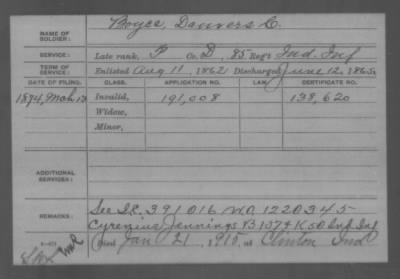 NAME OF SOLDIER: Boyce, Danvers C.
SERVICE: Late rank, P Co. D, 85 Reg't Ind. Inf
TERM OF SERVICE: Enlisted Aug 11, 1862 Discharged June 12, 1865
DATE OF FILING. CLASS. APPLICATION NO. LAW. CERTIFICATE NO.
1874, Mch 13 Invalid, 191,008 138,620
Widow,
Minor,
ADDITIONAL SERVICES:
REMARKS: See I.C. 391016 W.O. 1220345
Cyrenius Jennings B 157 & K 50 Inf Ind
Died Jan 21, 1915, at Clinton Ind